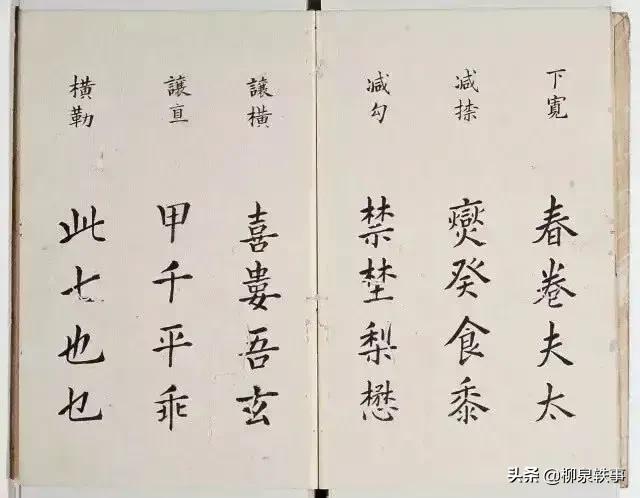 下寬
春卷夫太
减捺
燮癸食黍
减勾
禁埜梨懋
讓橫
喜婁吾玄
讓直
甲千平乖
橫勒
此七也乜
头条 @柳泉轶事